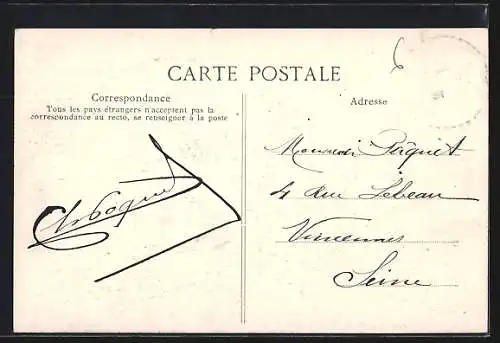 CARTE POSTALE
Correspondance
Tous les pays étrangers n'acceptent pas la
correspondance au recto, se renseigner à la poste
Adresse
6
Monsieur
4 Rue Lebeau
Vincennes
Seine